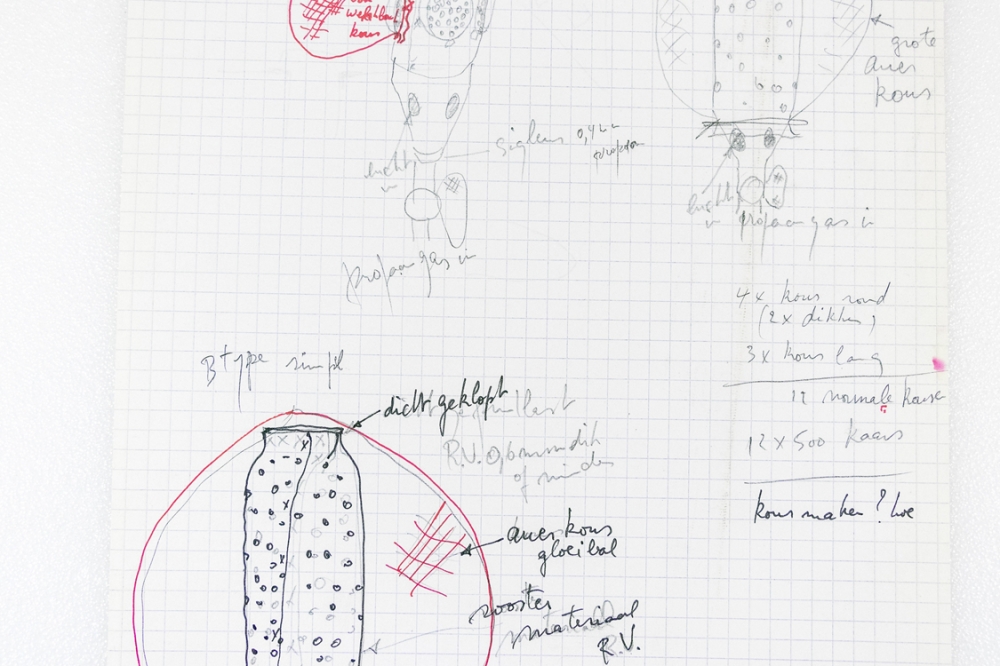 kous
grote
auer
kous
sigleur 0,4
lucht
in
lucht
in propaan gas in
propaan gas in
4x kous rond
(2x dikte)
3x kous lang
12 normale kous
12 x 500 kaars
kous maken? hoe
B type simpel
dicht geklopt
R.V. 0,6 mm dik
of minder
auer kous
gloeibol
rooster
materiaal
R.V.